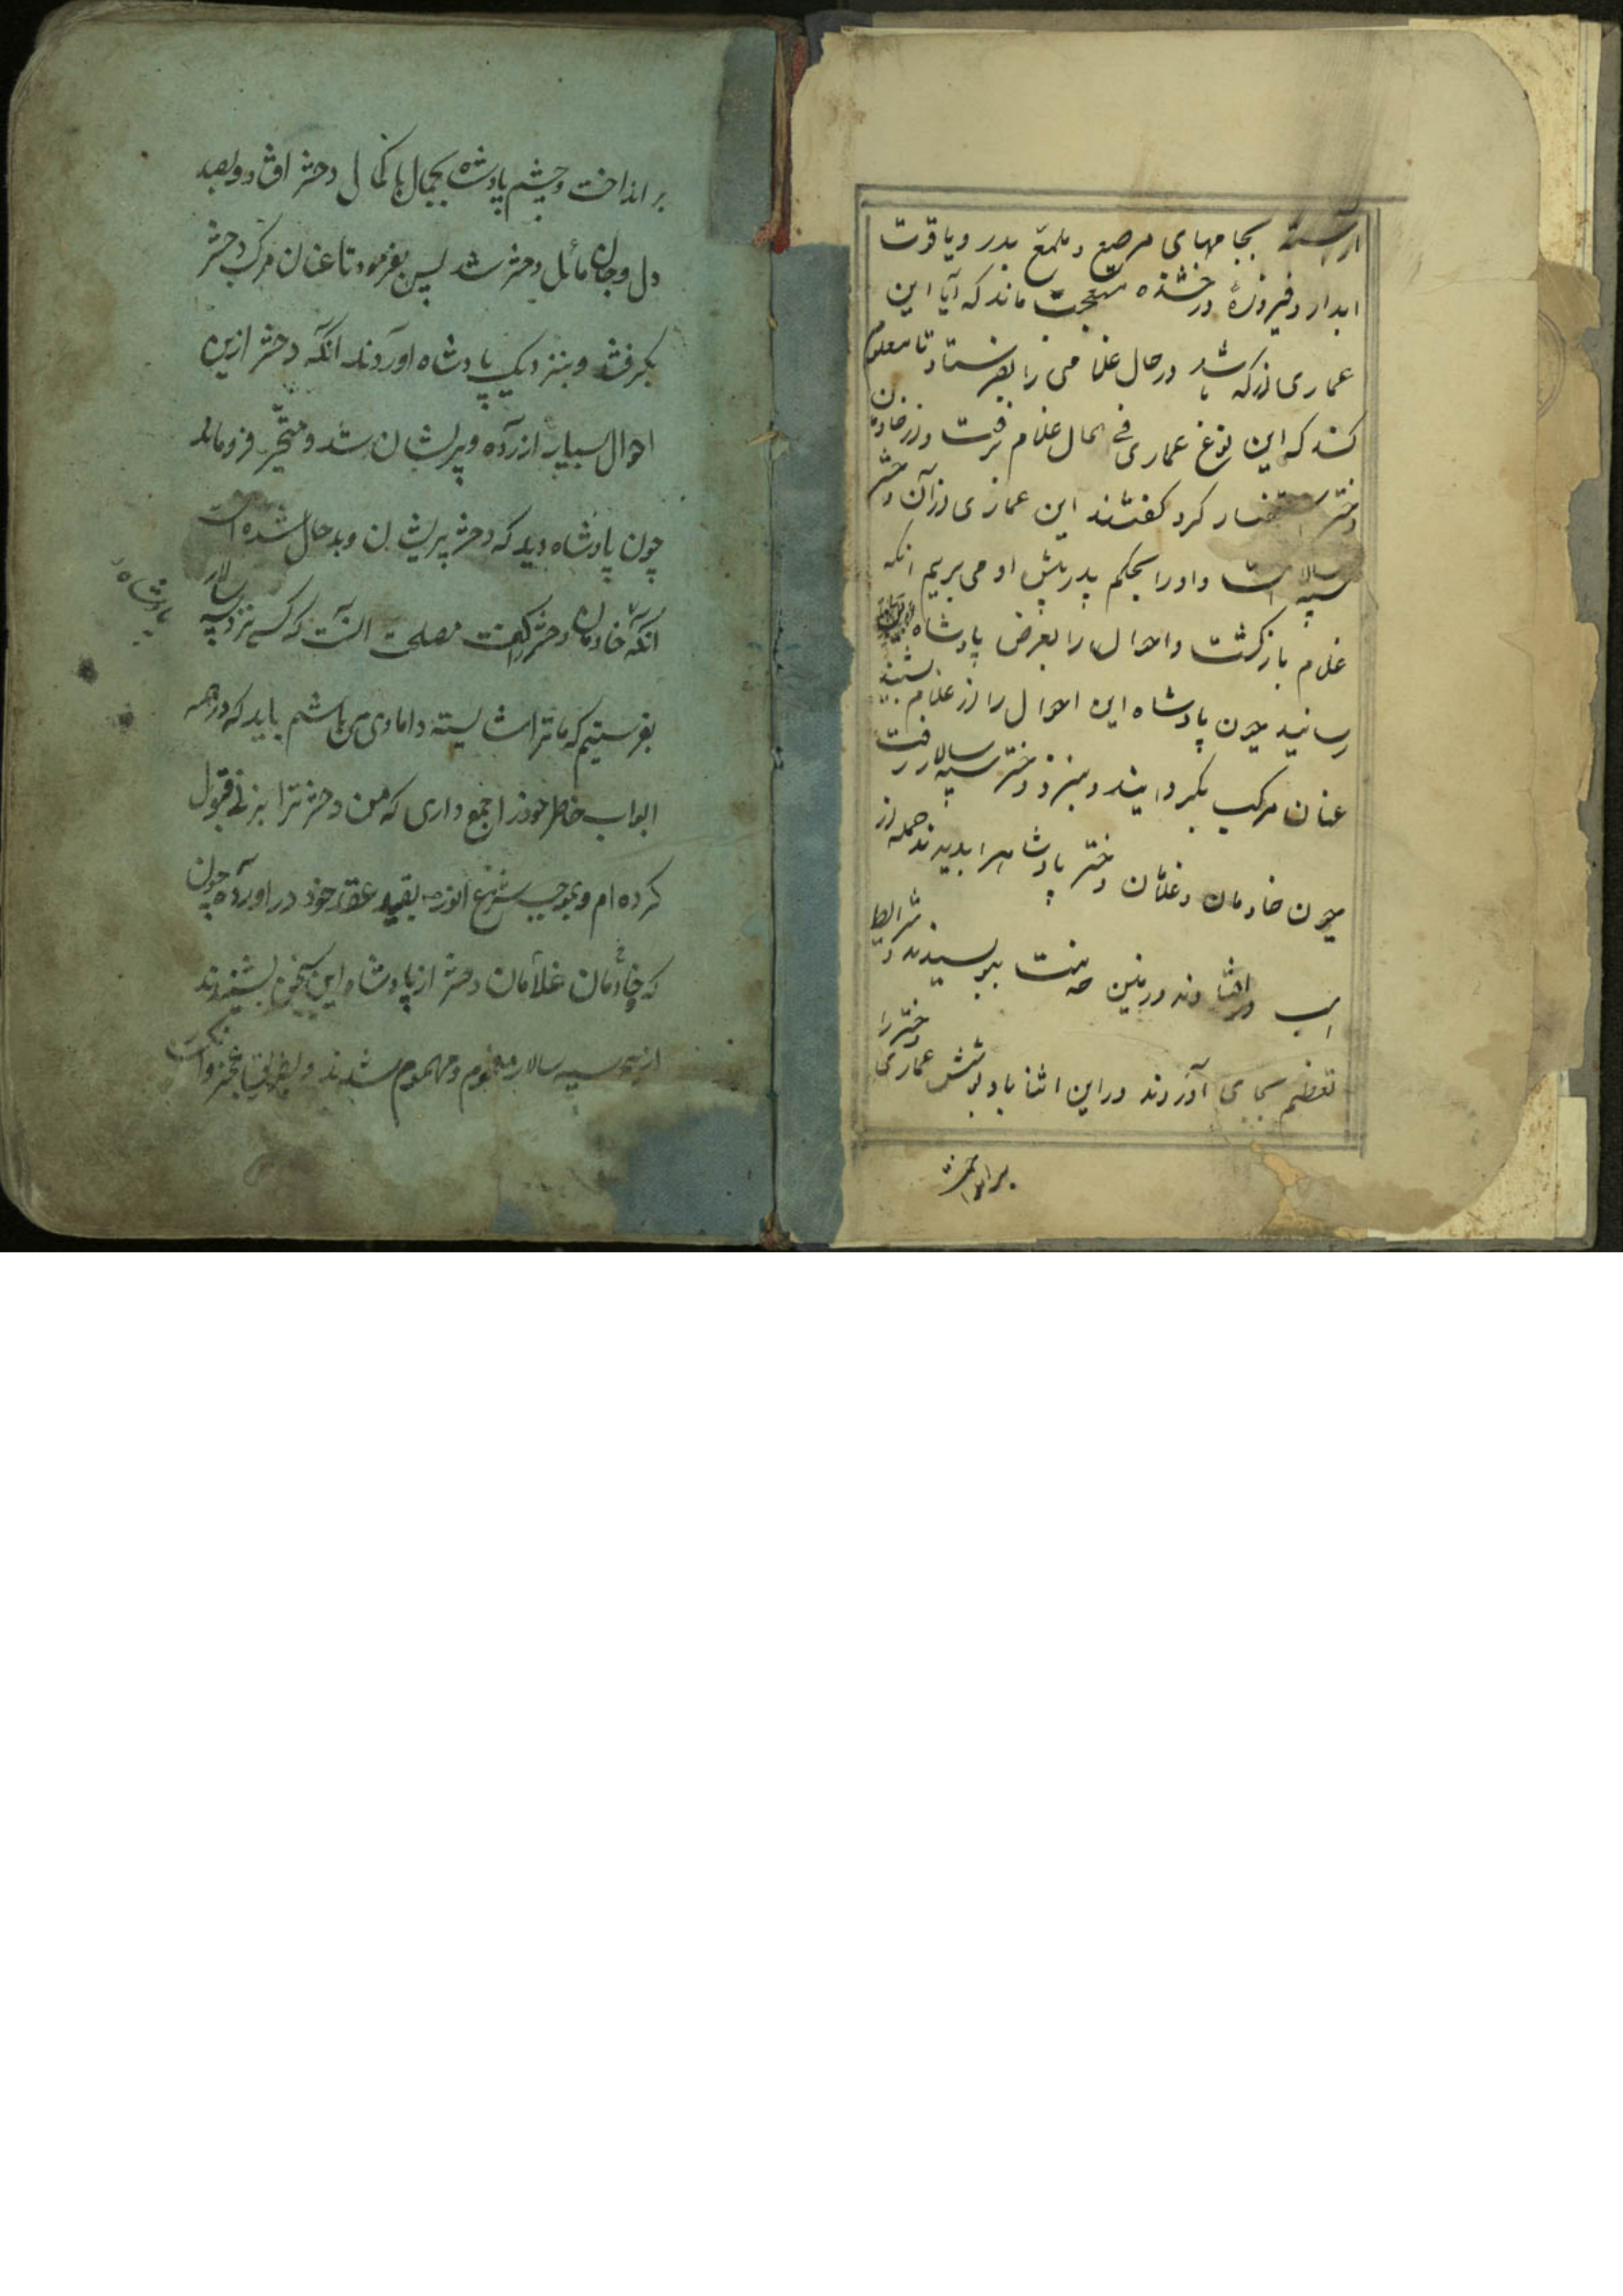 اراسته بجامهای مرصع و ملمع بدر و یاقوت
ابدار و فیروزهٔ درخشنده متعجب ماند که آیا این
عماری از که باشد در حال غلامی را بفرستاد تا معلوم
کند که این نوع عماری فی الحال غلام برفت و از خادمان
دختر استفسار کرد کفتند این عماری از آن دختر
سپه سالار است و او را بحکم پدر پیش او می بریم انکه
غلام بازکشت و احوال را بعرض پادشاه
رسانید چون پادشاه این احوال را از غلام بشنید
عنان مرکب بکردانیند و بنزد دختر سپه سالار رفت
چون خادمان و غلمان دختر پادشاهرا بدیدند جمله از
اسب در افتادند و زمین خدمت ببوسیدند و شرایط
تعظیم بجای آوردند در این اثنا باد پوشش عماری دختر را
برانداخت
برانداخت و چشم پادشاه بجمال باکمال دختر افتاد و بصد
دل و جان مائل دختر شد پس بفرمود تا عنان مرکب دختر
بکرفتند و بنزدیک پادشاه اوردند انکه دختر ازین
احوال بسیار ازرده و پریشان شد و متحیّر فروماند
چون پادشاه دید که دختر پریشان و بدحال شده است
انکه خادمان دختر را کفت مصلحت انست که کسی نزد سپه سالار
پادشاه
بفرستیم که ما ترا شایسته دامادی می باشم باید که در همه
ابواب خاطر خود را جمع داری که من دختر ترا بزنی قبول
کرده ام و بموجب شرع انور بقید عقد خود در اورده چون
که خادمان غلامان دختر از پادشاه این سخن بشنیدند
از سپه سالار مغموم و مهموم شدند و